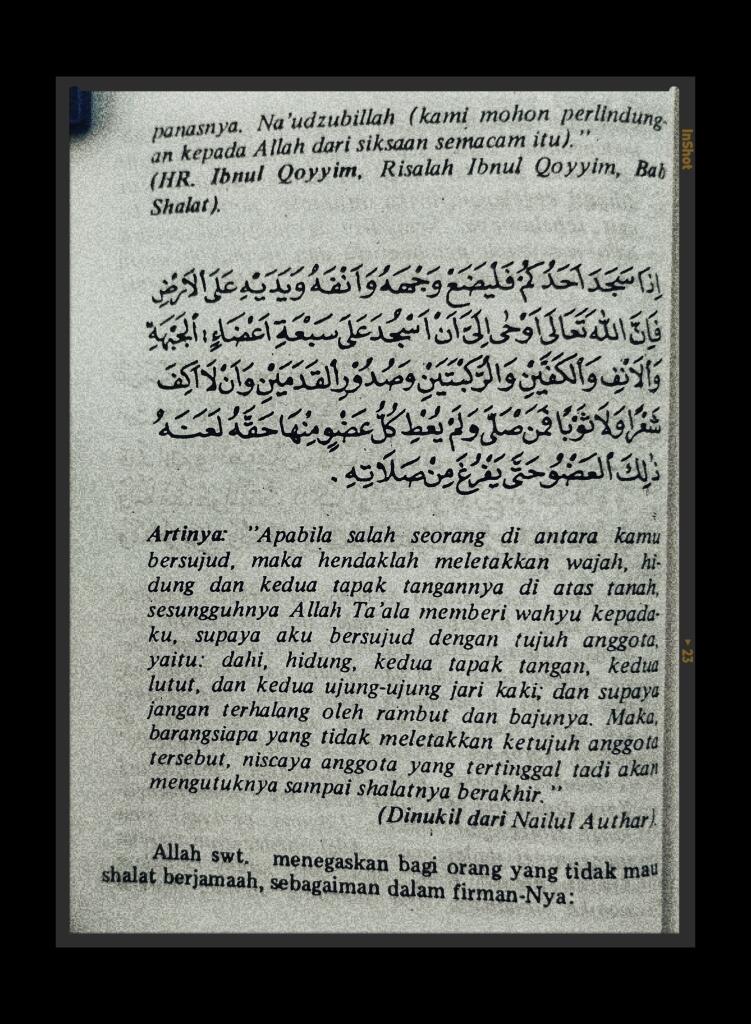 panasnya. Na'udzubillah (kami mohon perlindung-
an kepada Allah dari siksaan semacam itu)."
(HR. Ibnul Qoyyim, Risalah Ibnul Qoyyim, Bab
Shalat).
اِذَا سَجَدَ اَحَدُكُمْ فَلْيَضَعْ وَجْهَهُ وَاَنْفَهُ وَيَدَيْهِ عَلَى الْاَرْضِ
فَاِنَّ اللهَ تَعَالَى اَوْحٰى اِلَيَّ اَنْ اَسْجُدَ عَلَى سَبْعَةِ اَعْضَاءٍ : اَلْجَبْهَةِ
وَالْاَنْفِ وَالْكَفَّيْنِ وَالرُّكْبَتَيْنِ وَصُدُوْرِ الْقَدَمَيْنِ وَاَنْ لَا اَكِفَ
شَعْرًا وَلَا ثَوْبًا فَمَنْ صَلَّى وَلَمْ يُعْطِ كُلَّ عَضْوٍ مِنْهَا حَقَّهُ لَعَنَهُ
ذٰلِكَ الْعَضْوُ حَتَّى يَفْرُغَ مِنْ صَلَاتِهِ .
Artinya: "Apabila salah seorang di antara kamu
bersujud, maka hendaklah meletakkan wajah, hi-
dung dan kedua tapak tangannya di atas tanah,
sesungguhnya Allah Ta'ala memberi wahyu kepada-
ku, supaya aku bersujud dengan tujuh anggota,
yaitu: dahi, hidung, kedua tapak tangan, kedua
lutut, dan kedua ujung-ujung jari kaki; dan supaya
jangan terhalang oleh rambut dan bajunya. Maka,
barangsiapa yang tidak meletakkan ketujuh anggota
tersebut, niscaya anggota yang tertinggal tadi akan
mengutuknya sampai shalatnya berakhir."
(Dinukil dari Nailul Authar).
Allah swt. menegaskan bagi orang yang tidak mau
shalat berjamaah, sebagaiman dalam firman-Nya:
InShot
23